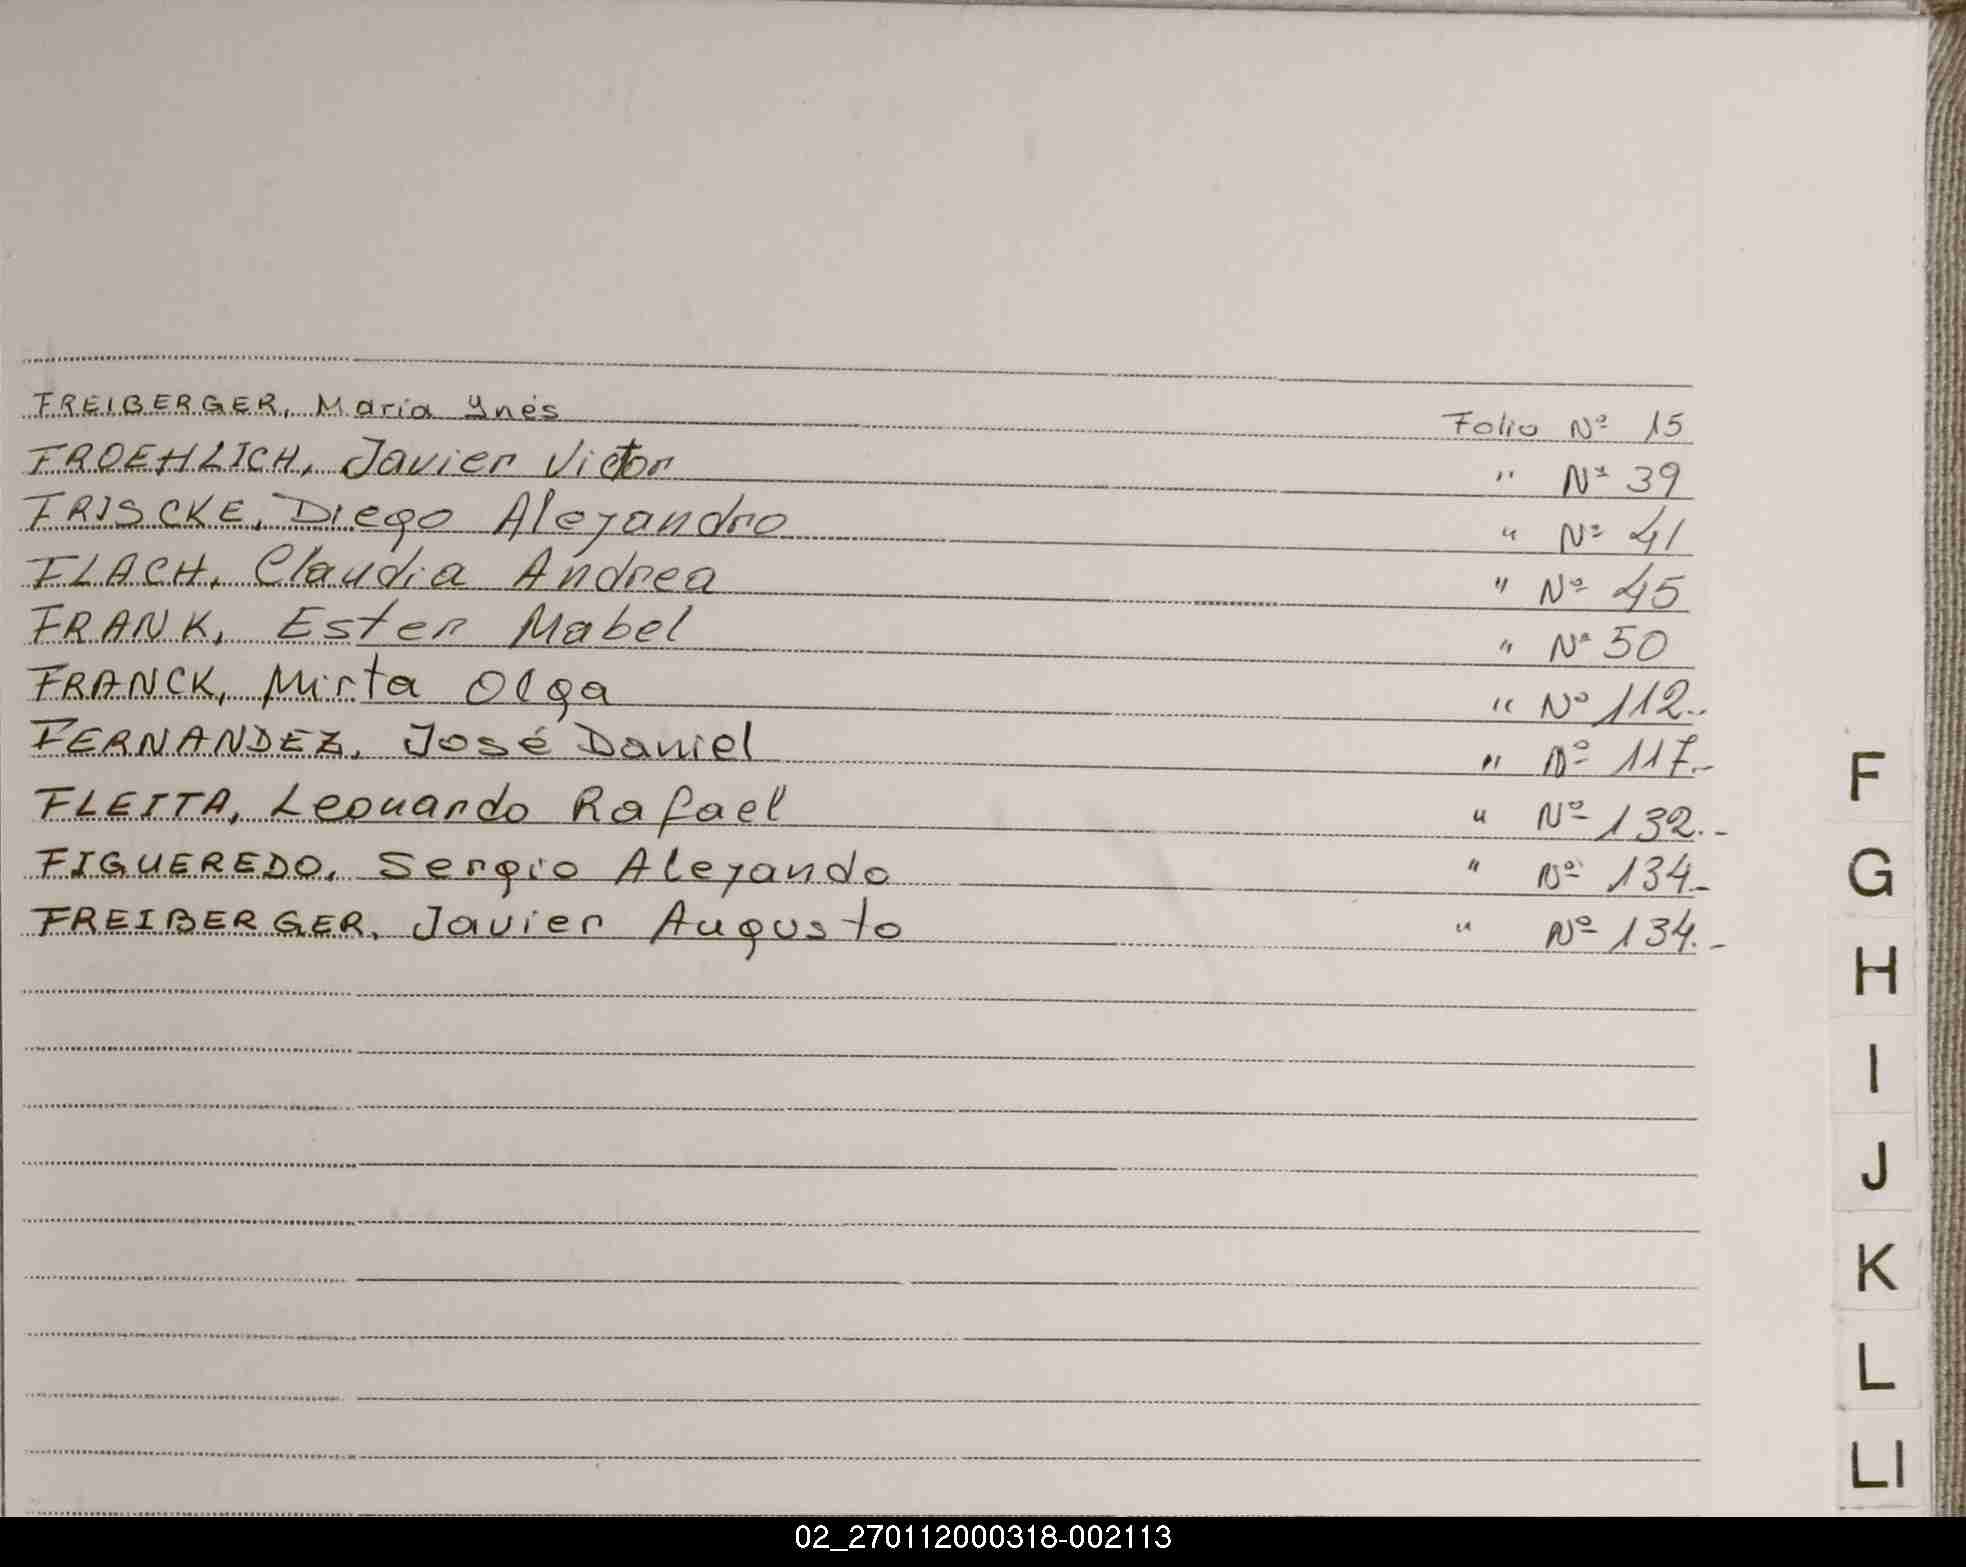 FREIBERGER, Maria Ynés Folio Nº 15
FROEHLICH, Javier Victor " Nº 39
FRISCKE, Diego Alejandro " Nº 41
FLACH, Claudia Andrea " Nº 45
FRANK, Ester Mabel " Nº 50
FRANCK, Mirta Olga " Nº 112.-
FERNANDEZ, José Daniel " Nº 117.-
FLEITA, Leonardo Rafael " Nº 132.-
FIGUEREDO, Sergio Alejando " Nº 134.-
FREIBERGER, Javier Augusto " Nº 134.-
F
G
H
I
J
K
L
Ll
02_270112000318-002113